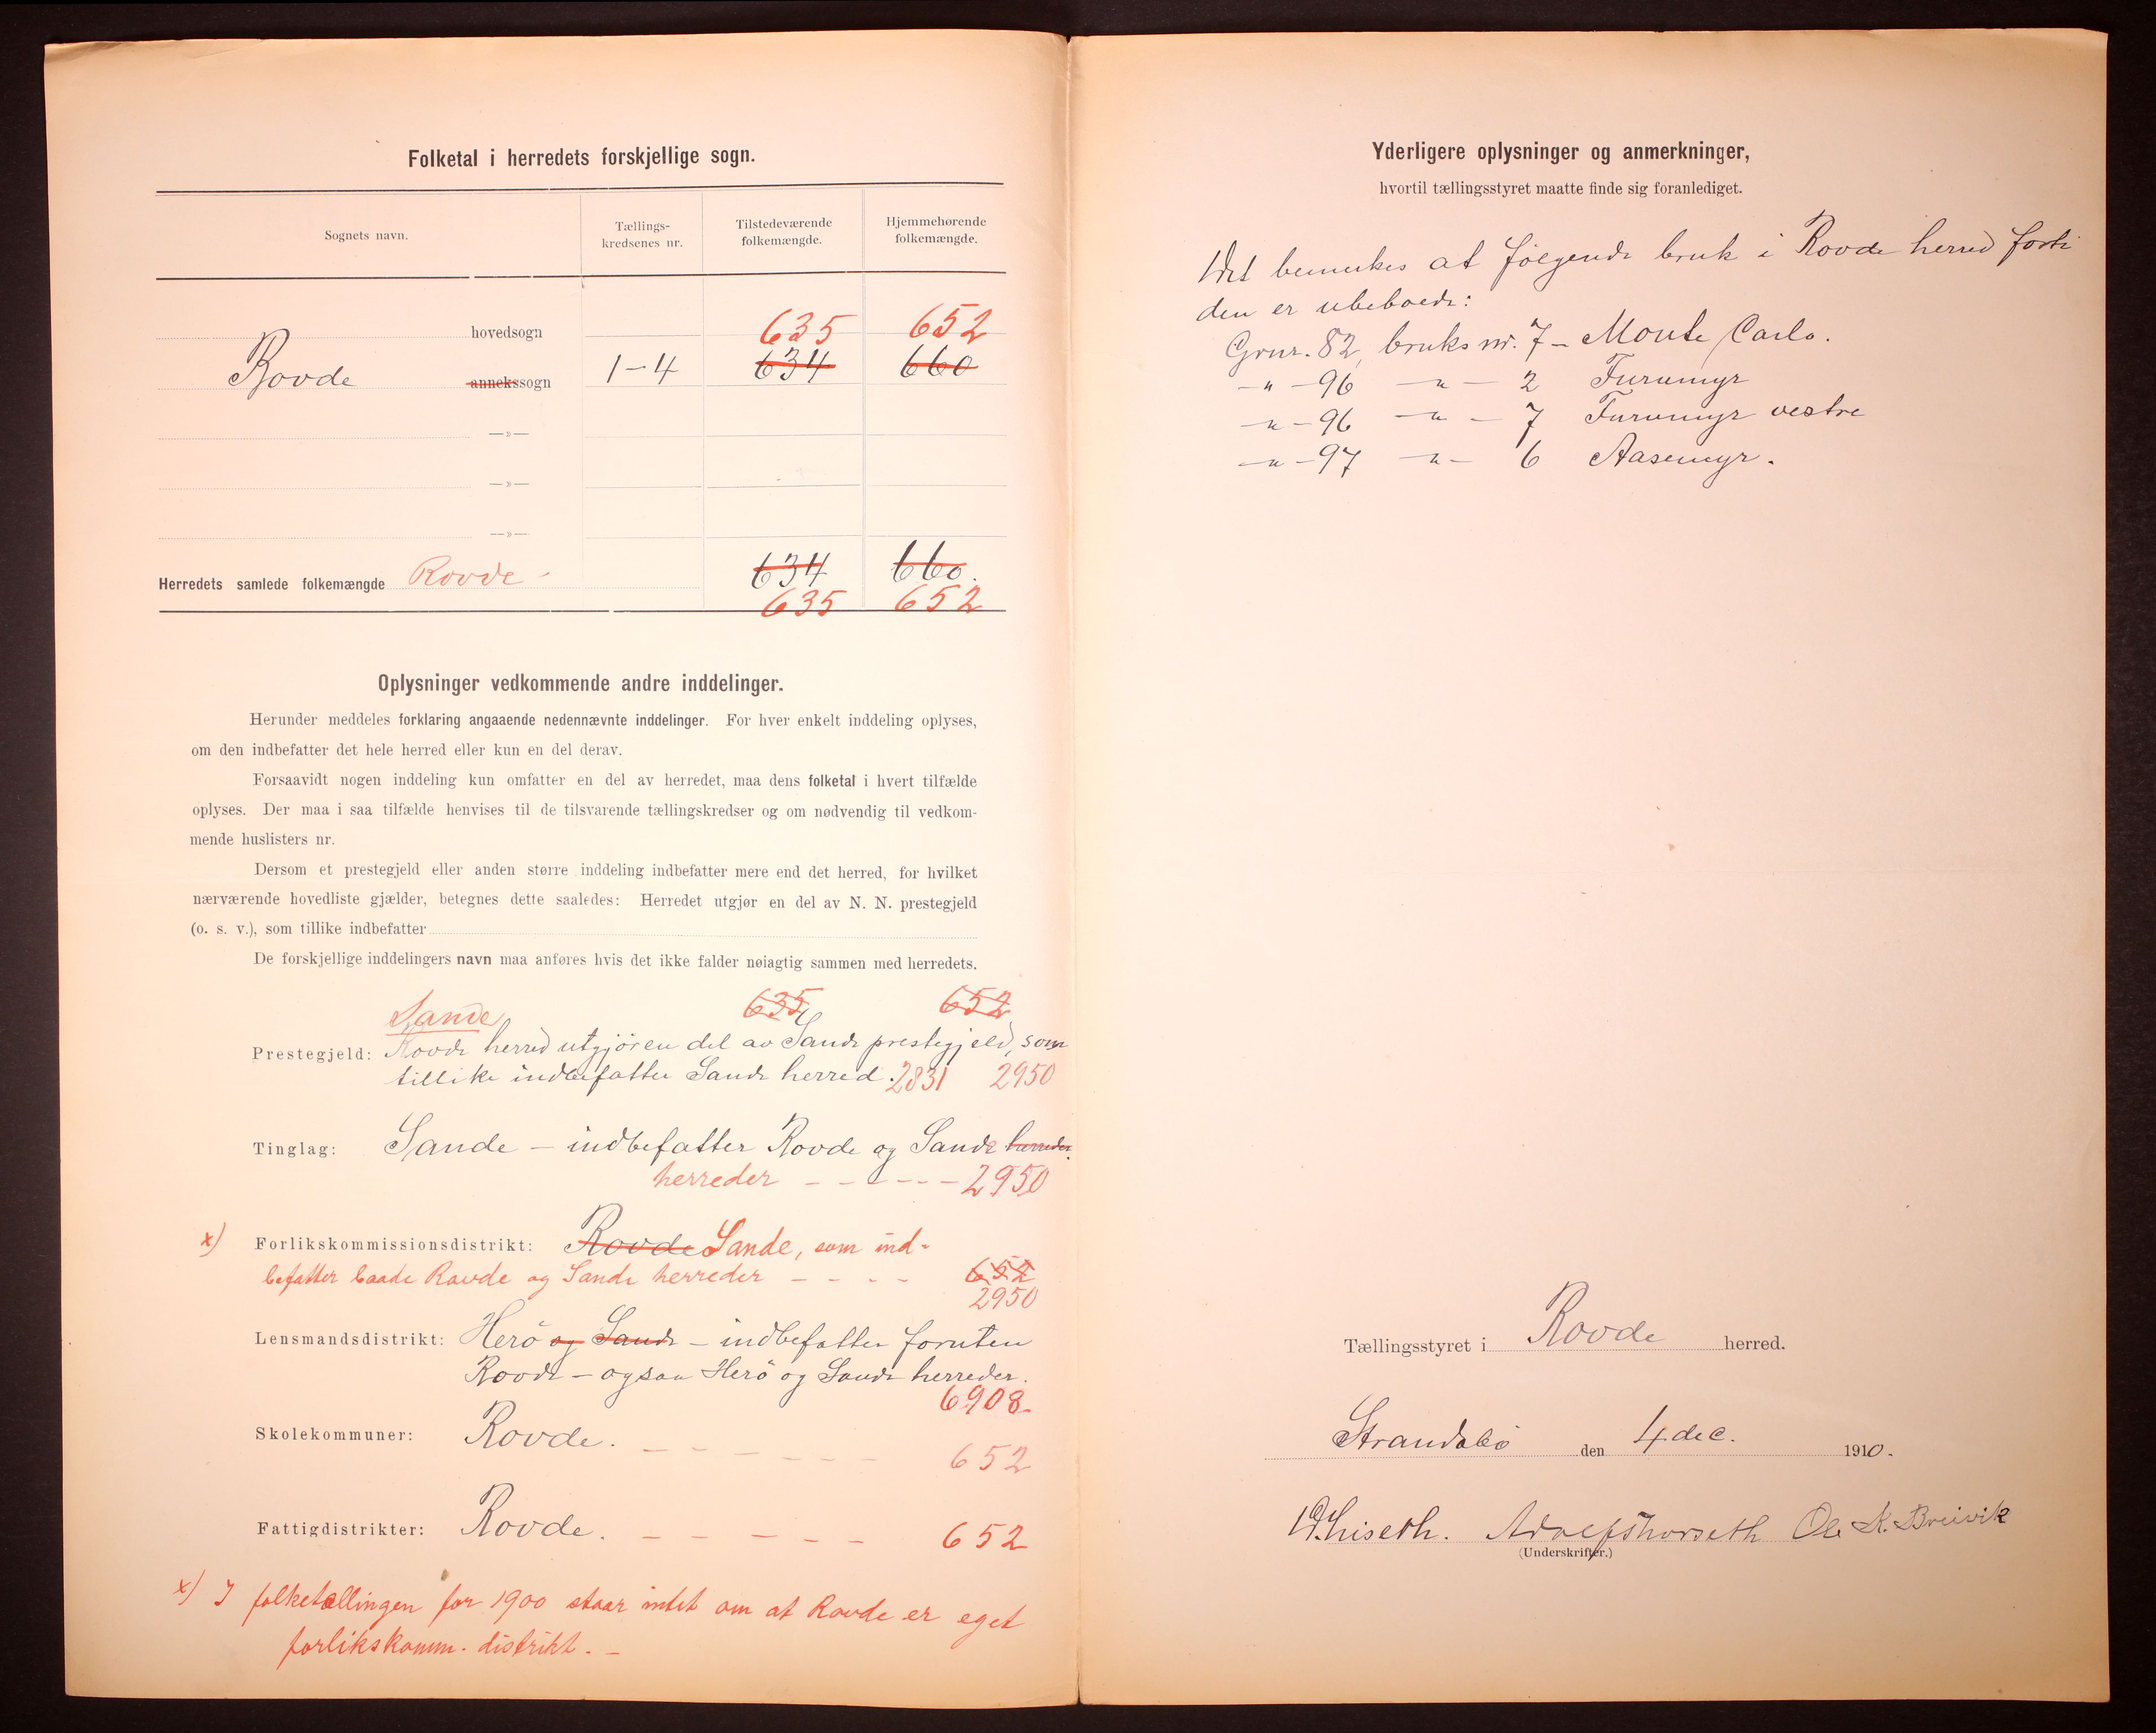 Folketal i herredets forskjellige sogn.
Sognets navn.
Tællings-
kredsenes nr.
Tilstedeværende
folkemængde.
Hjemmehørende
folkemængde.
hovedsogn 635 652
Rovde annekssogn 1-4 634 660
—»—
—»—
—»—
Herredets samlede folkemængde Rovde - 634 660.
635 652
Oplysninger vedkommende andre inddelinger.
Herunder meddeles forklaring angaaende nedennævnte inddelinger. For hver enkelt inddeling oplyses,
om den indbefatter det hele herred eller kun en del derav.
Forsaavidt nogen inddeling kun omfatter en del av herredet, maa dens folketal i hvert tilfælde
oplyses. Der maa i saa tilfælde henvises til de tilsvarende tællingskredser og om nødvendig til vedkom-
mende huslisters nr.
Dersom et prestegjeld eller anden større inddeling indbefatter mere end det herred, for hvilket
nærværende hovedliste gjælder, betegnes dette saaledes: Herredet utgjør en del av N. N. prestegjeld
(o. s. v.), som tillike indbefatter
De forskjellige inddelingers navn maa anføres hvis det ikke falder nøiagtig sammen med herredets.
Sande 635 652
Prestegjeld: Rovde herred utgjør en del av Sande prestegjeld, som
tillike indbefatter Sande herred. 2831 2950
Tinglag: Sande – indbefatter Rovde og Sande herreder.
herreder – – – – – – 2950
x) Forlikskommissionsdistrikt: Rovde Sande, som ind-
befatter baade Rovde og Sande herreder – – – – 652
2950
Lensmandsdistrikt: Herö og Sande – indbefatter foruten
Rovde – ogsaa Herö og Sande herreder.
6908-
Skolekommuner: Rovde. – – – – – – 652
Fattigdistrikter: Rovde. – – – – – 652
x) I folketællingen for 1900 staar intet om at Rovde er eget
forlikskomm. distrikt. –
Yderligere oplysninger og anmerkninger,
hvortil tællingsstyret maatte finde sig foranlediget.
Det bemerkes at følgende bruk i Rovde herred forti
den er ubeboede:
Grnr. 82, bruks nr. 7 – Monte Carlo.
–„– 96 –„– 2 Furumyr
–„– 96 –„– 7 Furumyr vestre
–„– 97 –„– 6 Aasemyr.
Tællingsstyret i Rovde herred.
Strandabö den 4 dec. 1910.
Adolf Thorseth Ole K. Breivik
(Underskrifter.)